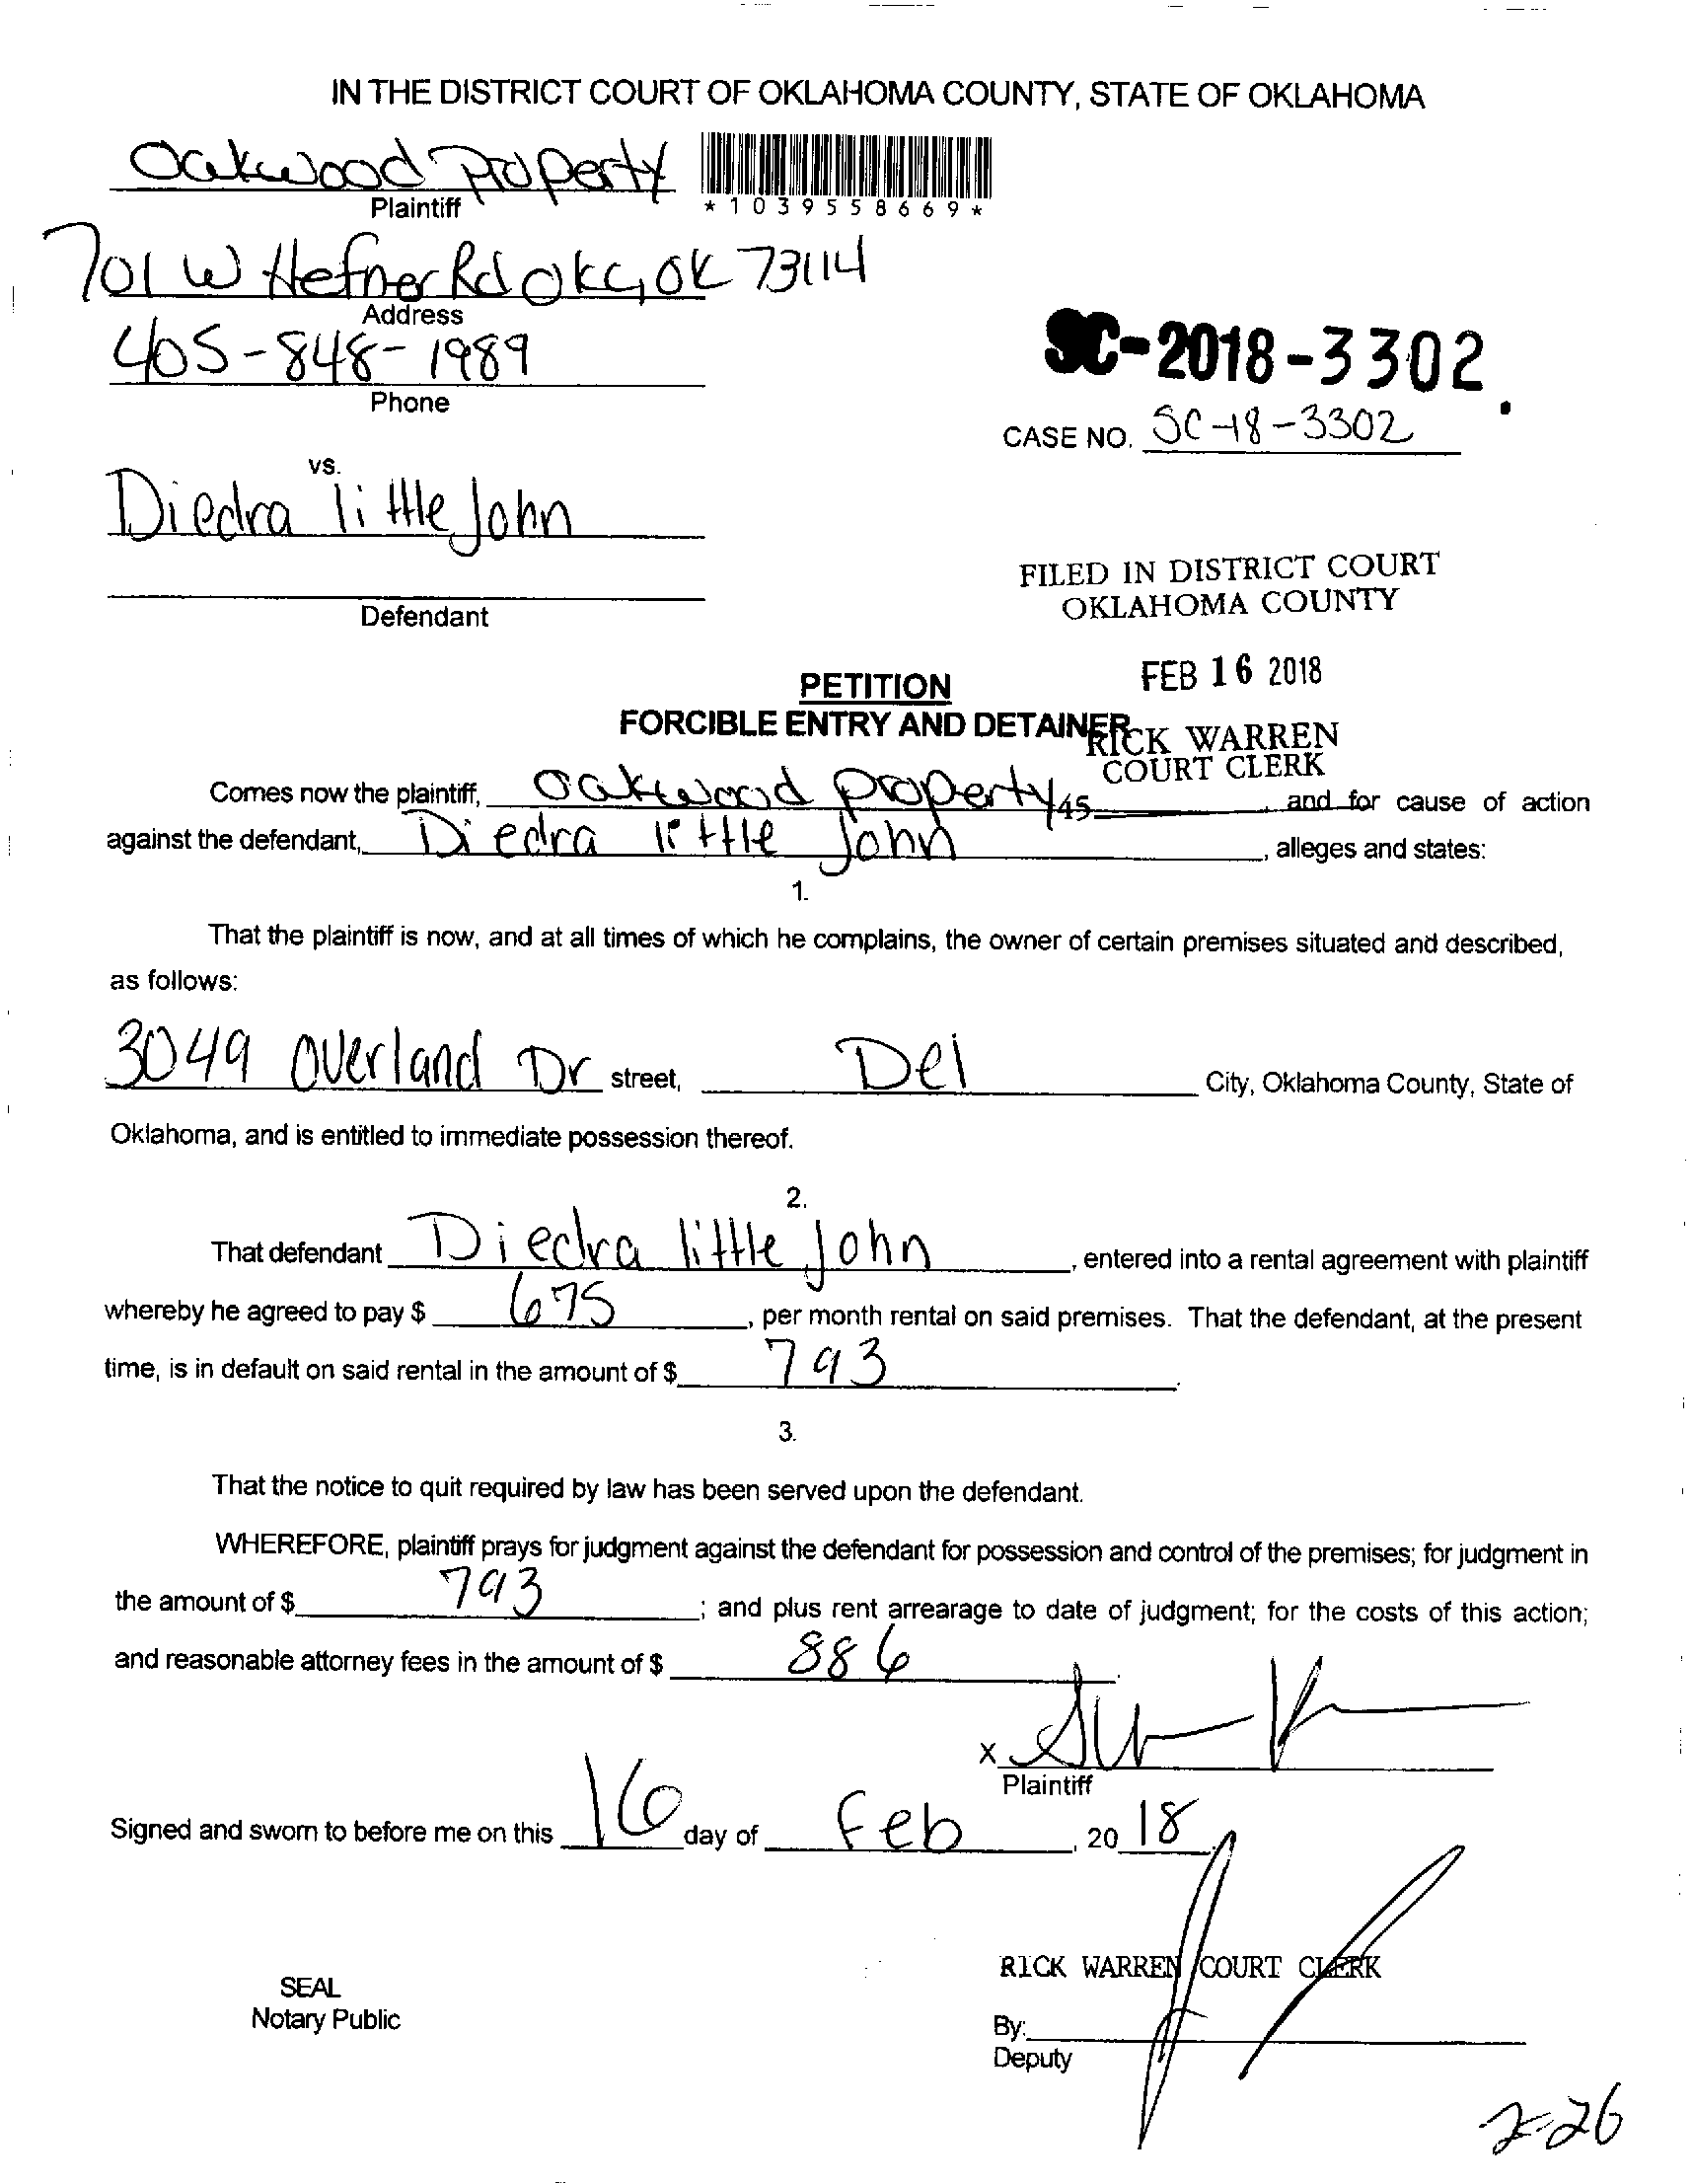 IN THE DISTRICT COURT OF OKLAHOMA COUNTY, STATE OF OKLAHOMA
Oakwood Property
Plaintiff
*1039558669*
701 W Hefner Rd OKC, OK 73114
Address
405-848-1989
Phone
SC-2018-3302.
CASE NO. SC-18-3302
vs.
Diedra little John
Defendant
FILED IN DISTRICT COURT
OKLAHOMA COUNTY
FEB 16 2018
RICK WARREN
COURT CLERK
PETITION
FORCIBLE ENTRY AND DETAINER
45
Comes now the plaintiff, Oakwood Property and for cause of action
against the defendant, Diedra little John, alleges and states:
1.
That the plaintiff is now, and at all times of which he complains, the owner of certain premises situated and described,
as follows:
3049 Overland Dr street, Del City, Oklahoma County, State of
Oklahoma, and is entitled to immediate possession thereof.
2.
That defendant Diedra little John, entered into a rental agreement with plaintiff
whereby he agreed to pay $ 675, per month rental on said premises. That the defendant, at the present
time, is in default on said rental in the amount of $ 793.
3.
That the notice to quit required by law has been served upon the defendant.
WHEREFORE, plaintiff prays for judgment against the defendant for possession and control of the premises; for judgment in
the amount of $ 793; and plus rent arrearage to date of judgment; for the costs of this action;
and reasonable attorney fees in the amount of $ 886
X
Plaintiff
Signed and sworn to before me on this 16 day of Feb, 20 18.
RICK WARREN COURT CLERK
SEAL
Notary Public
By:
Deputy
2-26